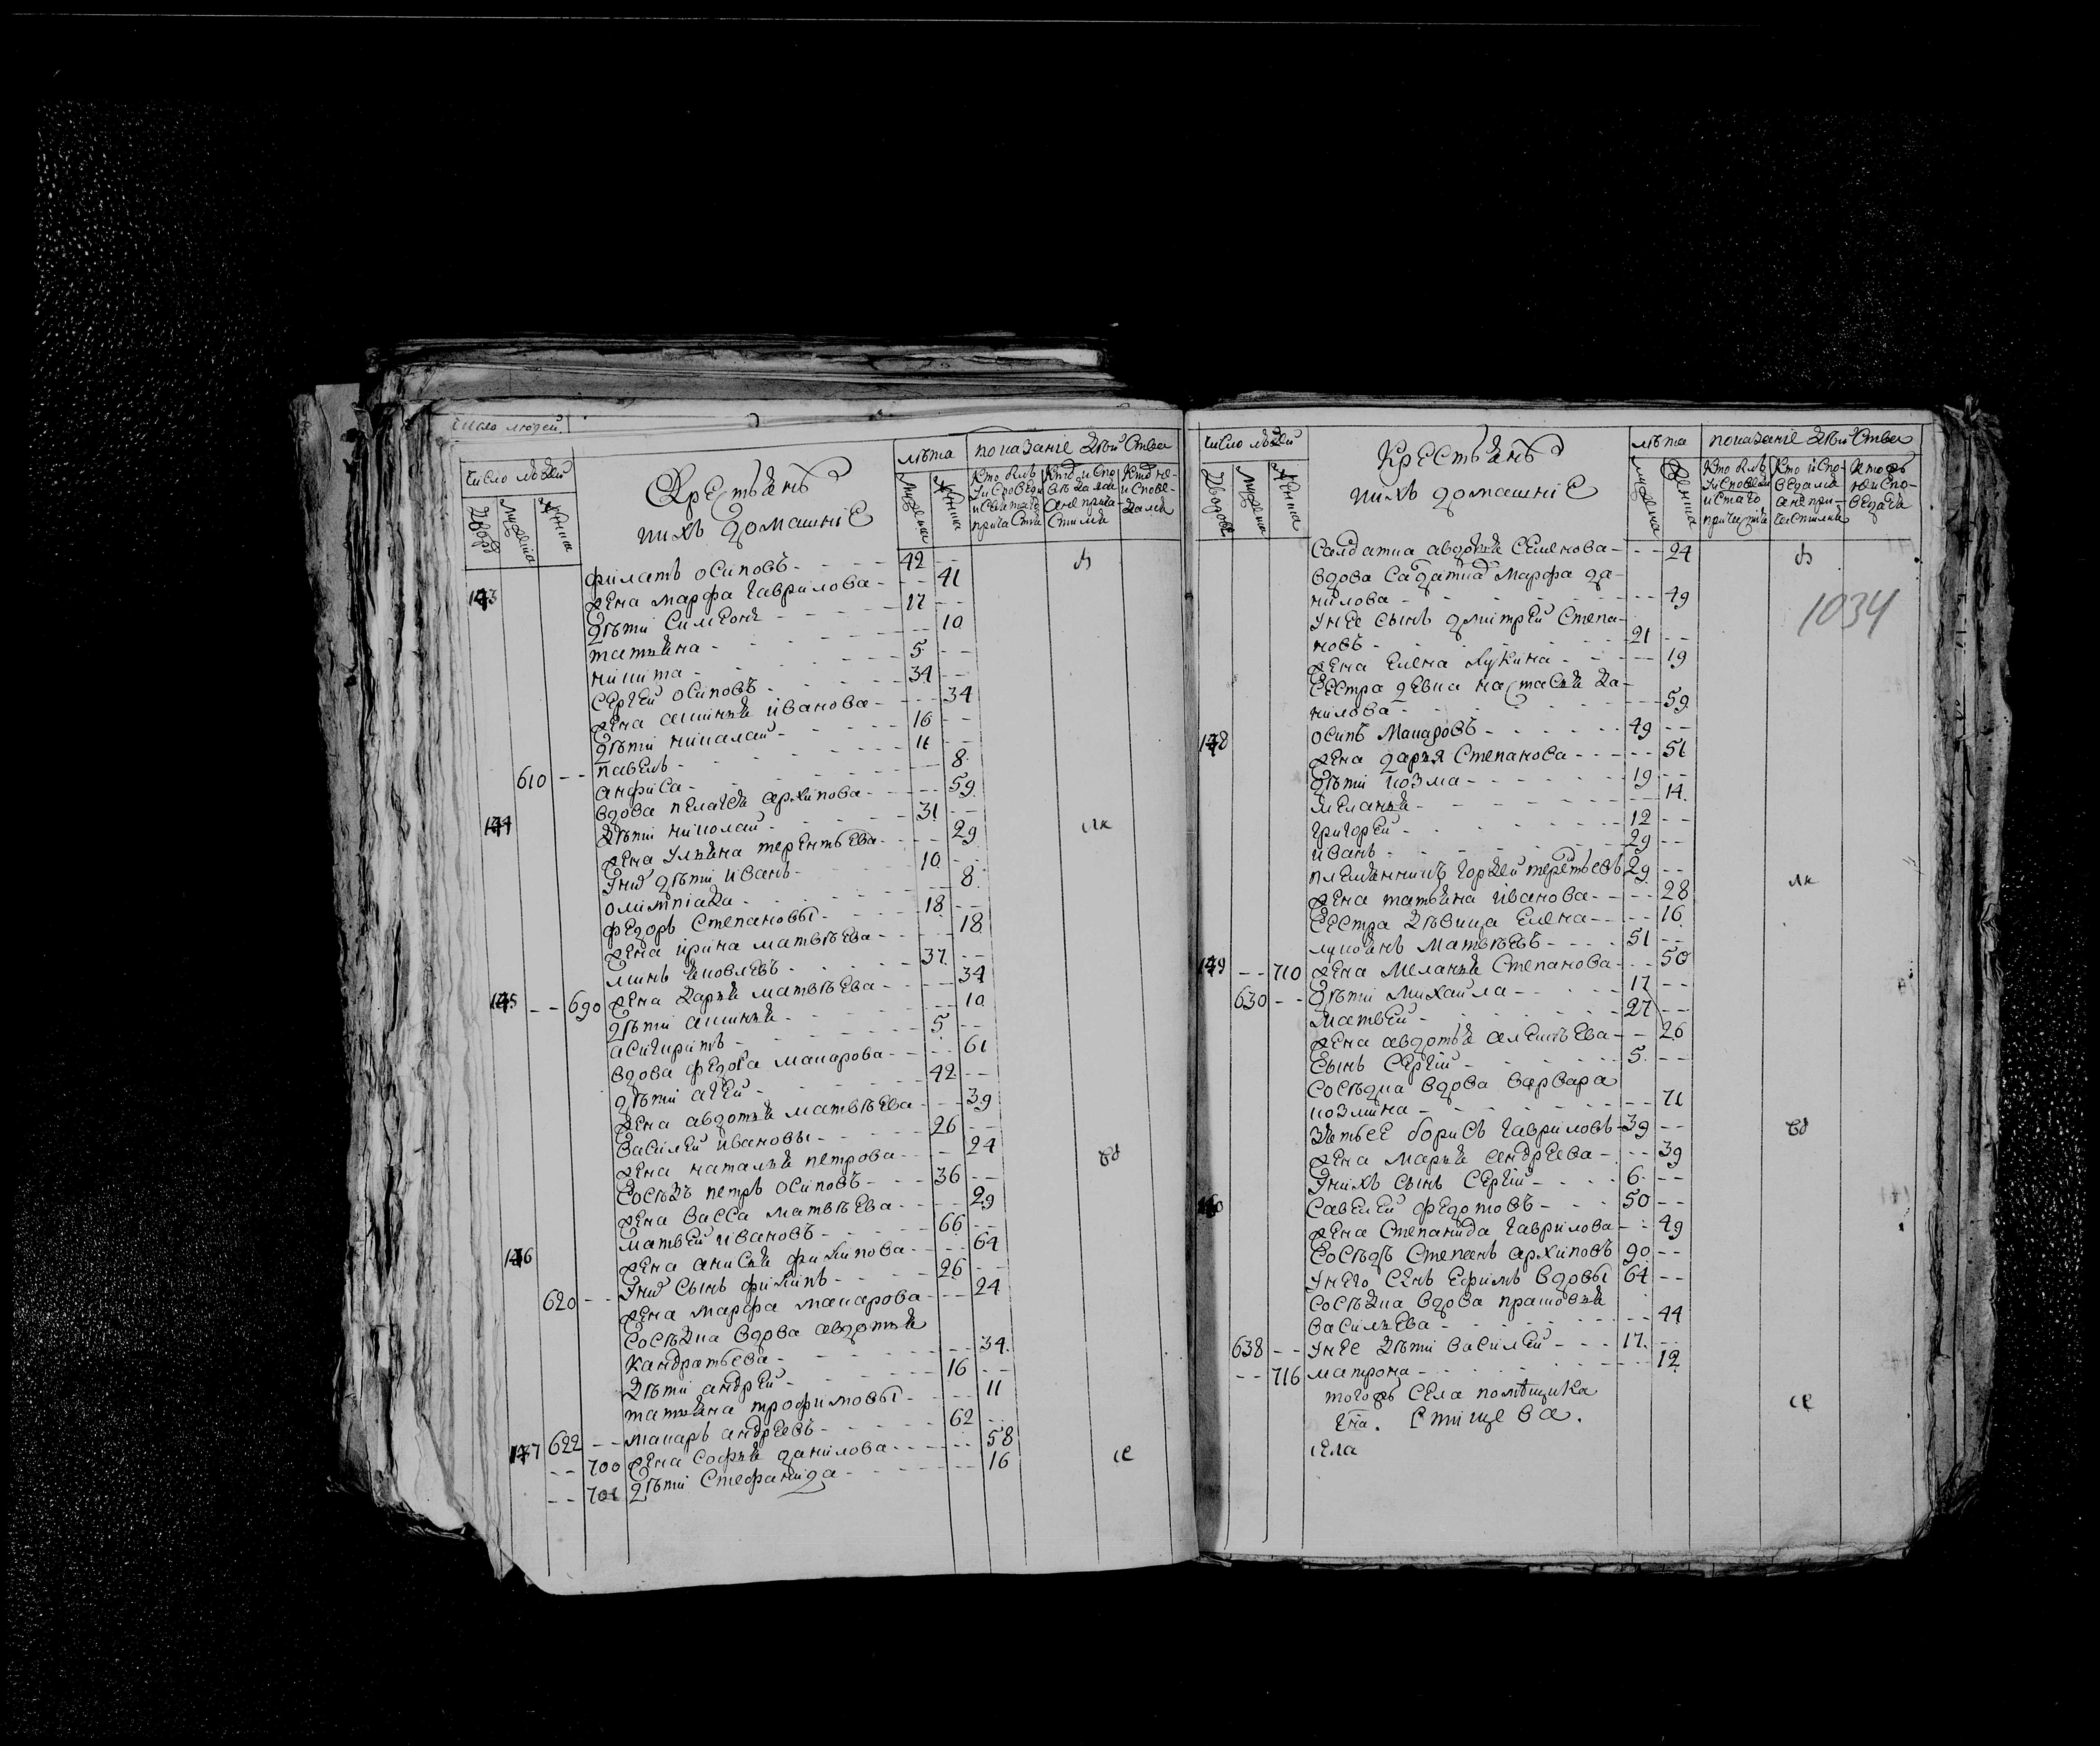 число людей
число людей
Крестьянъ
лѣта
показанїе дѣйства
дворъ
мужеска
женска
ихъ домашнїе
мужеска
женска
Кто былъ у исповеди и святаго причастия
Кто исповѣдался а не прича-стился
Кто не исповедался
филатъ осиповъ - 42
143 жена марфа гаврилова - 41
дѣти Симеонъ - 17
татьяна - 10
никита - 5
сергей осиповъ - 34
жена аксинья иванова - 34
дѣти николай - 16
610 -- павелъ - 11
анфиса - 8
вдова пелагея архипова - 59
144 дѣти николай - 31
жена ульяна терентьева - 29
у нихъ дѣти иванъ - 10
олимпиада - 8
федоръ степановы - 18
жена ирина матвѣева - 18
минъ яковлевъ - 37
145 -- 690 жена дарья матвѣева - 34
дѣти аксинья - 10
асигкритъ - 5
вдова федора макарова - 61
дѣти агей - 42
жена авдотья матвѣева - 39
василей ивановы - 26
жена наталья петрова - 24
сосѣдъ петръ осиповъ - 36
жена васса матвѣева - 29
матвей ивановъ - 66
146 жена анисья филипова - 64
у нихъ сынъ филипъ - 26
620 -- жена марфа макарова - 24
сосѣдка вдова авдотья
кандратьева - 34
дѣти андрей - 16
татьяна трофимовы - 11
147 622 -- макаръ андреевъ - 62
-- 700 жена софья данилова - 58
-- 701 дѣти стефанида - 16
число людей
Крестьянъ
лѣта
показанїе дѣйства
дворовъ
мужеска
женска
ихъ домашнїе
мужеска
женска
салдатка авдотья семенова - 24
вдова садатка марфа да-
нилова - 49
1034
у нее сынъ дмитрей степа-
новъ - 21
жена елена лукина - 19
сестра девка настасья да-
нилова - 59
148 осипъ макаровъ - 49
жена дарья степанова - 51
дѣти козма - 19
меланья - 14
григорей - 12
иванъ - 29
племянникъ гордей терентьевъ 29
жена татьяна иванова - 28
сестра дѣвица елена - 16
лукьянъ матвѣевъ - 51
149 -- 710 жена меланья степанова - 50
630 -- дѣти михайла - 17
матвей - 27
жена авдотья алексѣева - 26
сынъ сергий - 5
сосѣдка вдова варвара
козмина - 71
зять ее борисъ гавриловъ - 39
жена марья андреева - 39
у нихъ сынъ сергий - 6
савелей федотовъ - 50
жена степанида гаврилова - 49
сосѣдъ степанъ архиповъ 90
у него сынъ ефимъ вдовы 64
сосѣдка вдова прасковья
васильева - 44
638 -- у нее дѣти василей - 17
-- 716 матрона - 12
тогожъ села помѣщика
гна. Стищева.
села